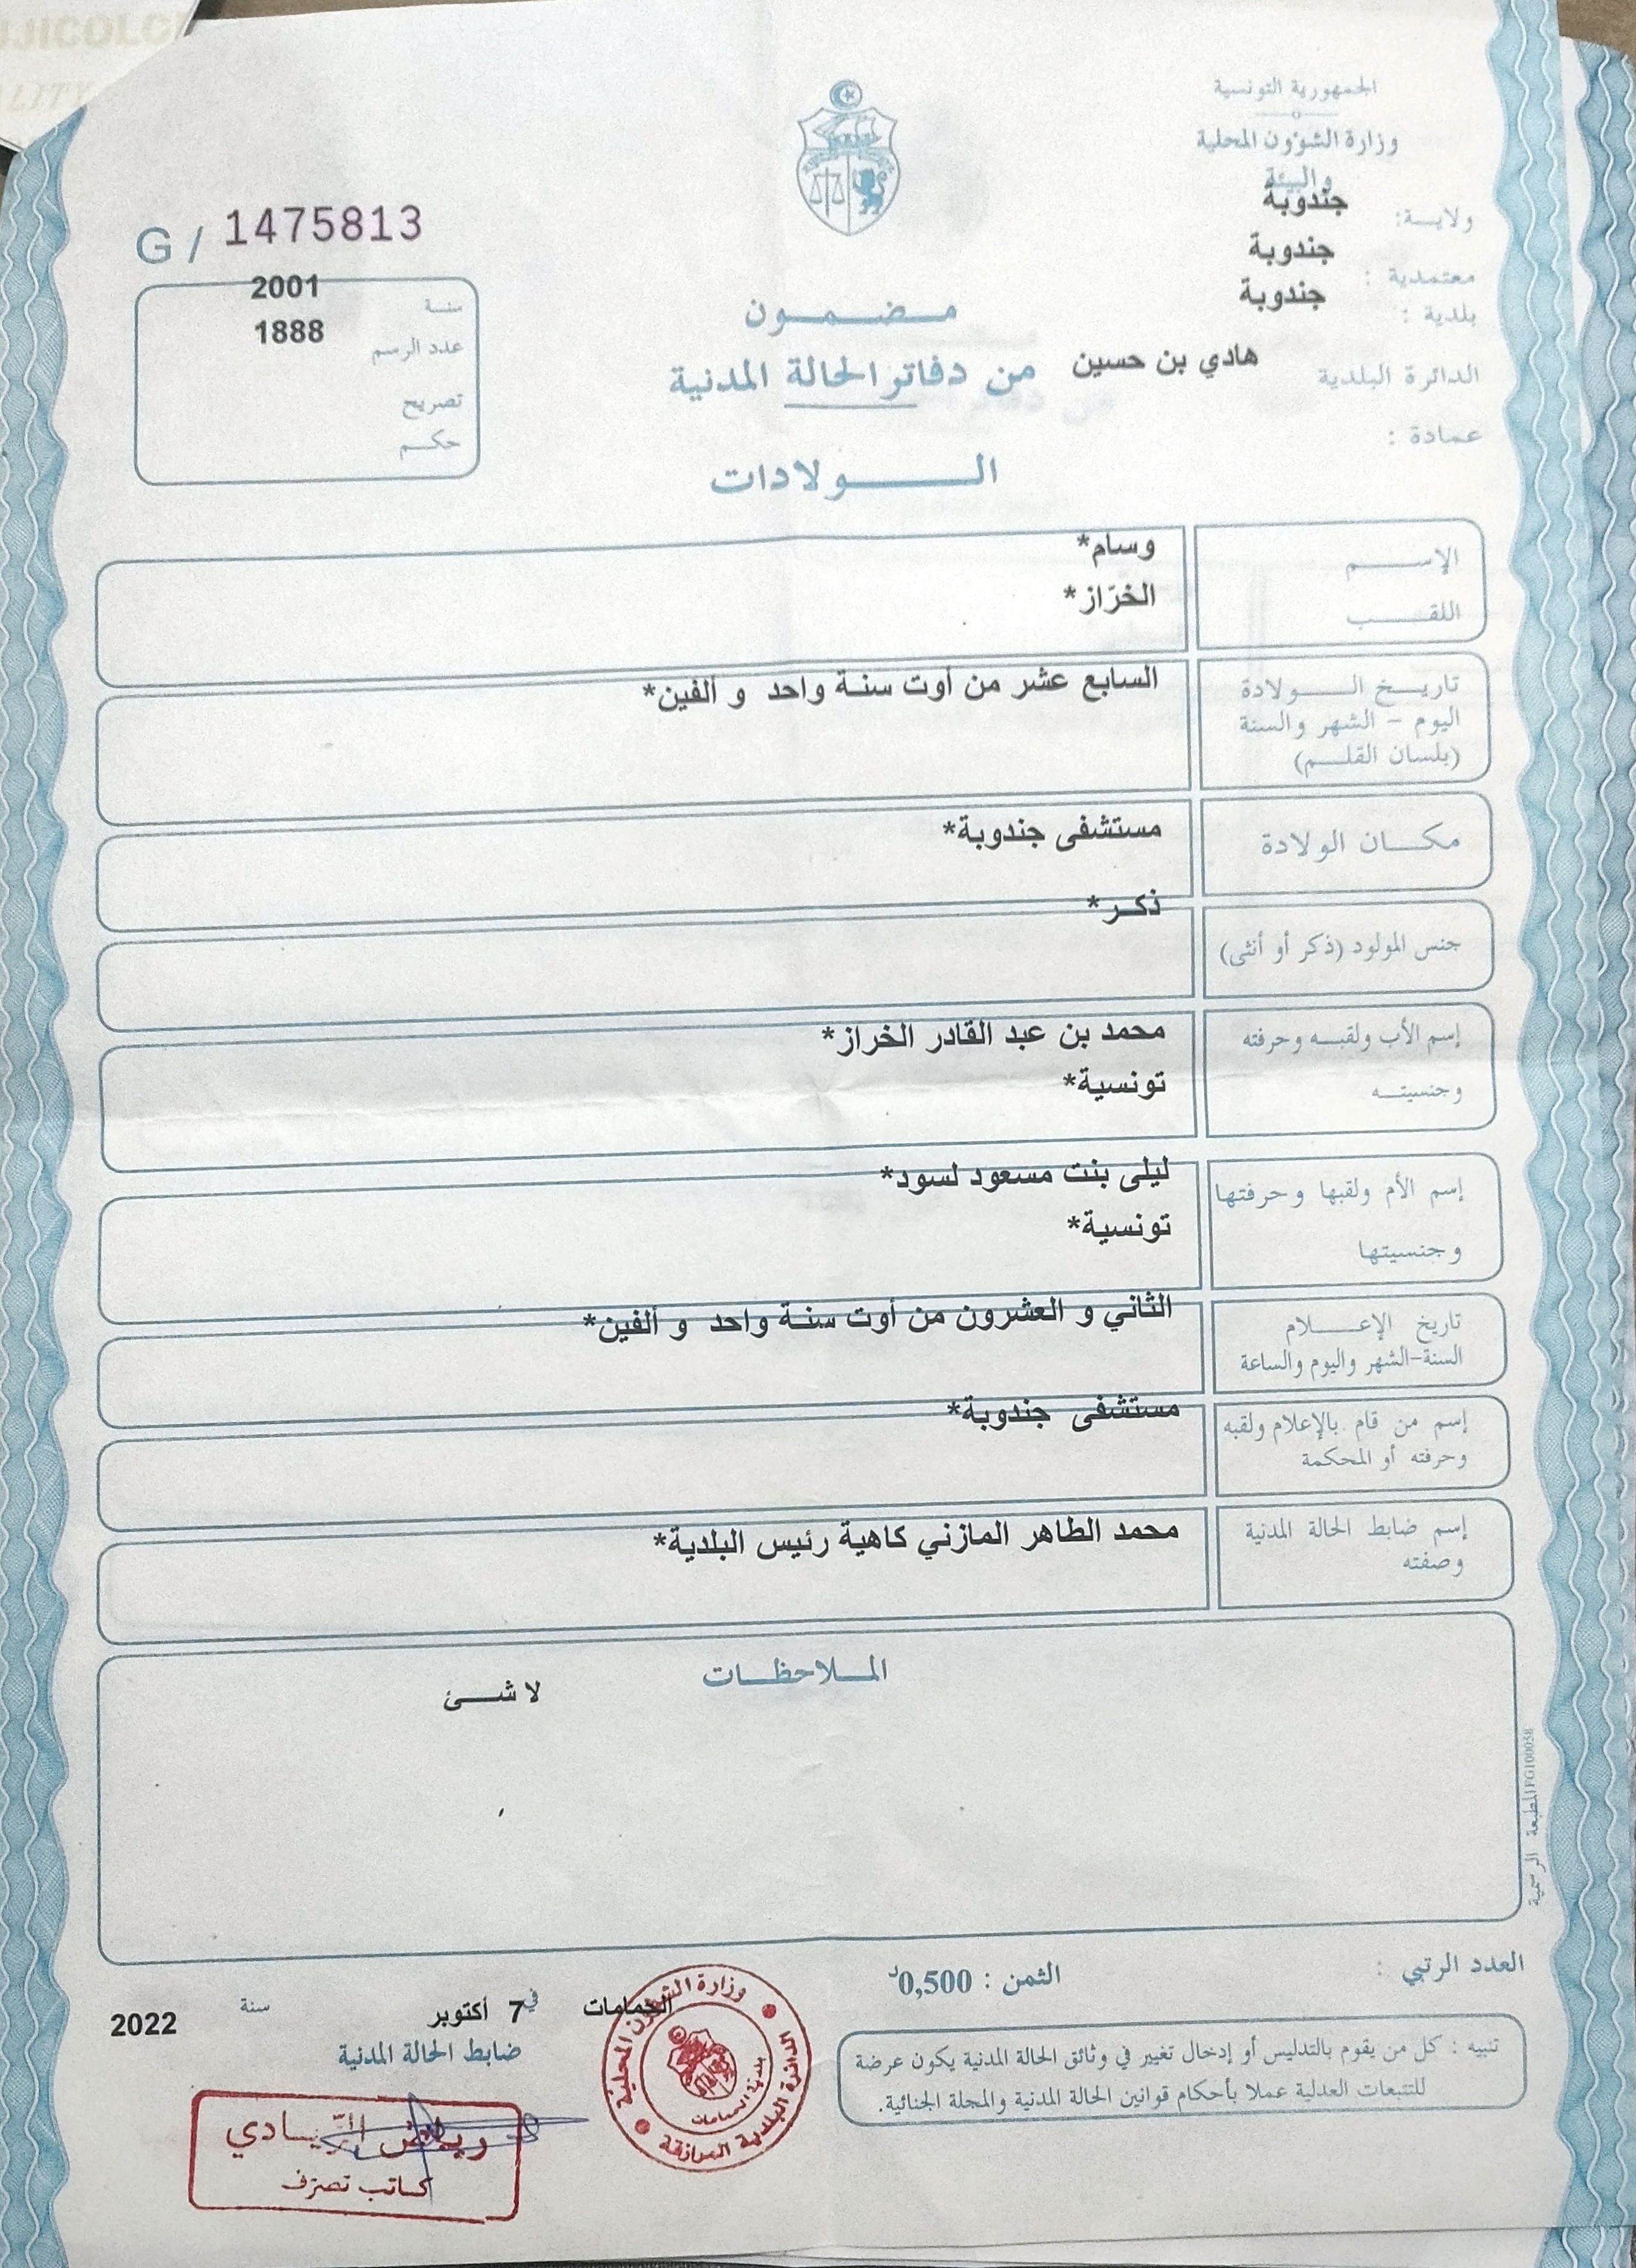 الجمهورية التونسية
وزارة الشؤون المحلية
والبيئة
ولايـــة: جندوبة
معتمدية : جندوبة
بلدية : جندوبة
الدائرة البلدية هادي بن حسين
عمادة :
G / 1475813
سنة 2001
عدد الرسم 1888
تصريح
حكم
مضمون
من دفاتر الحالة المدنية
الولادات
الإسم وسام*
اللقب الخرّاز*
تاريخ الولادة السابع عشر من أوت سنة واحد و ألفين*
اليوم - الشهر والسنة
(بلسان القلم)
مكان الولادة مستشفى جندوبة*
جنس المولود (ذكر أو أنثى) ذكر*
إسم الأب ولقبه وحرفته محمد بن عبد القادر الخراز*
وجنسيته تونسية*
إسم الأم ولقبها وحرفتها ليلى بنت مسعود لسود*
وجنسيتها تونسية*
تاريخ الإعلام الثاني و العشرون من أوت سنة واحد و ألفين*
السنة-الشهر واليوم والساعة
إسم من قام بالإعلام ولقبه مستشفى جندوبة*
وحرفته أو المحكمة
إسم ضابط الحالة المدنية محمد الطاهر المازني كاهية رئيس البلدية*
وصفته
الملاحظات
لا شئ
المطبعة الرسمية
العدد الرتبي :
الثمن : 0,500د
تنبيه : كل من يقوم بالتدليس أو إدخال تغيير في وثائق الحالة المدنية يكون عرضة
للتتبعات العدلية عملا بأحكام قوانين الحالة المدنية والمجلة الجنائية.
الحمامات في 7 أكتوبر سنة 2022
ضابط الحالة المدنية
وزارة الشؤون المحلية
الدائرة البلدية المرازقة
بلدية الحمامات
رياض الزيادي
كاتب تصرف